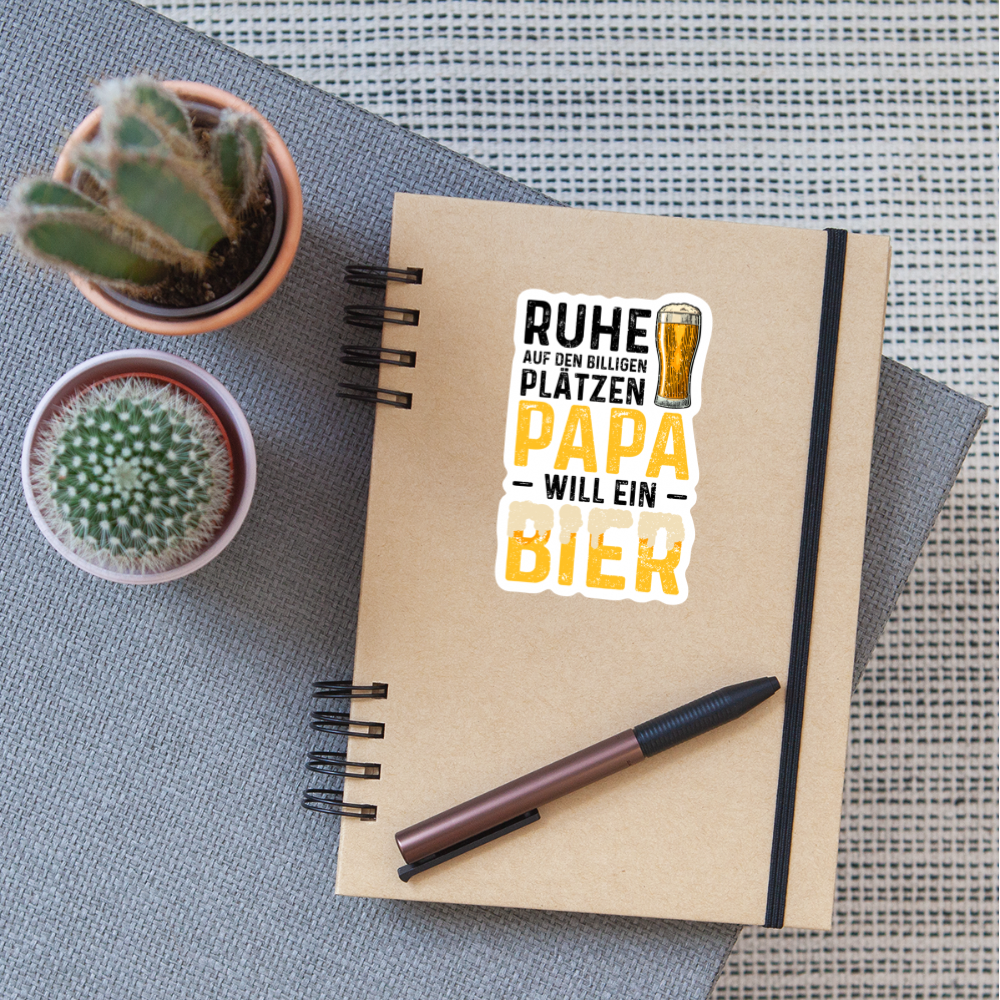 RUHE
AUF DEN BILLIGEN
PLÄTZEN
PAPA
– WILL EIN –
BIER